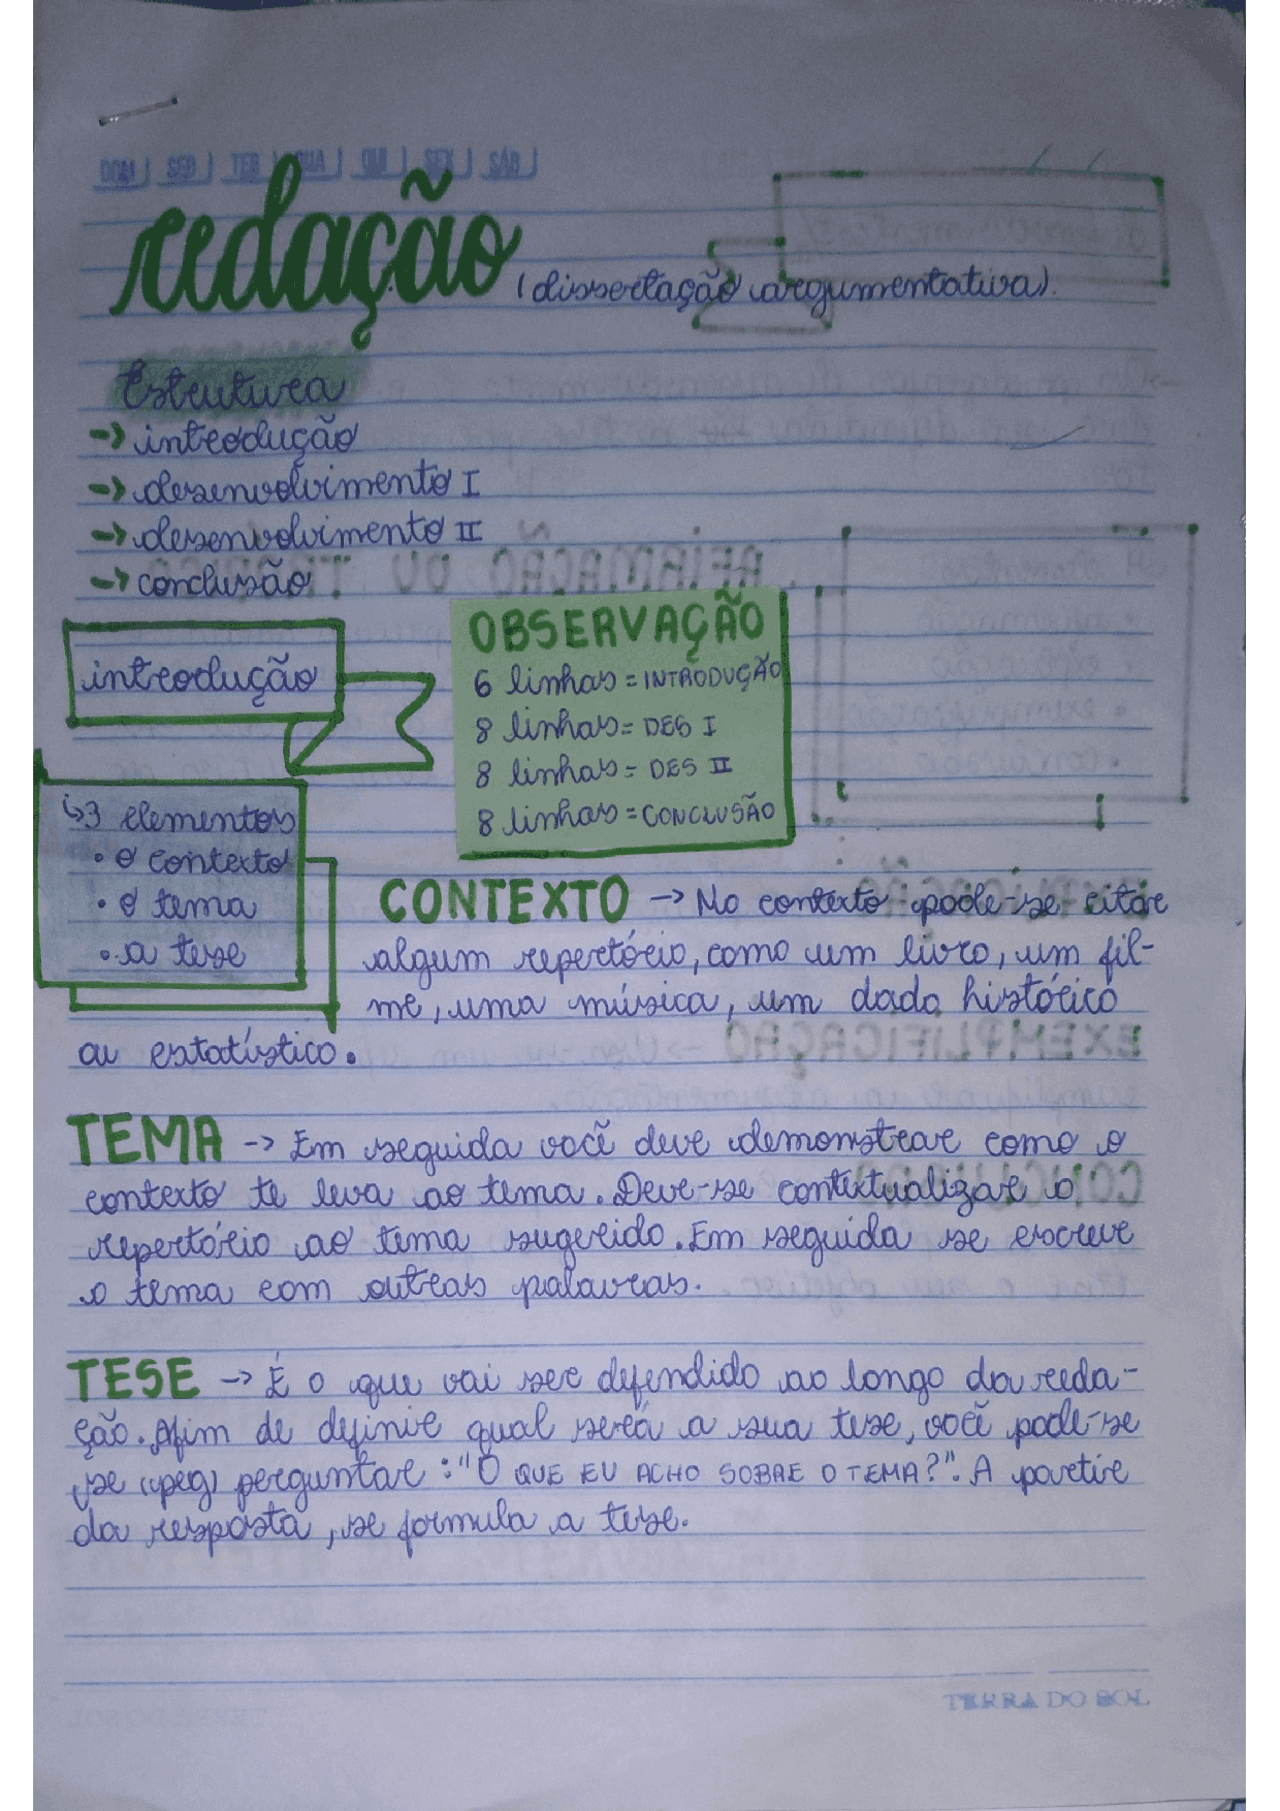 DOM SEG TER QUA QUI SEX SÁB
redação (dissertação argumentativa).
Estrutura
-> introdução
-> desenvolvimento I
-> desenvolvimento II
-> conclusão
introdução
OBSERVAÇÃO
6 linhas = INTRODUÇÃO
8 linhas = DES I
8 linhas = DES II
8 linhas = CONCLUSÃO
↳3 elementos
• o contexto
• o tema
• a tese
CONTEXTO -> No contexto pode-se citar
algum repertório, como um livro, um fil-
me, uma música, um dado histórico
ou estatístico.
TEMA -> Em seguida você deve demonstrar como o
contexto te leva ao tema. Deve-se contextualizar o
repertório ao tema sugerido. Em seguida se escreve
o tema com outras palavras.
TESE -> É o que vai ser defendido ao longo da reda-
ção. Afim de definir qual será a sua tese, você pode-se
se (peg) perguntar : "O QUE EU ACHO SOBRE O TEMA?". A partir
da resposta, se formula a tese.
TERRA DO SOL